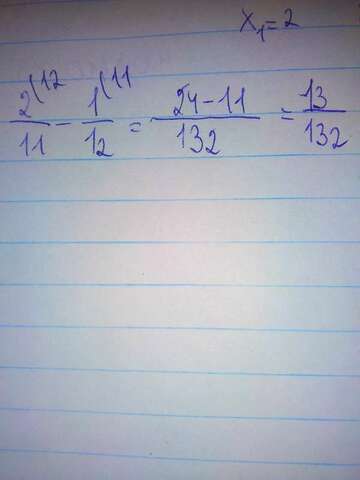 x₁=2
2(12/11 - 1(11/12 = 24-11/132 = 13/132